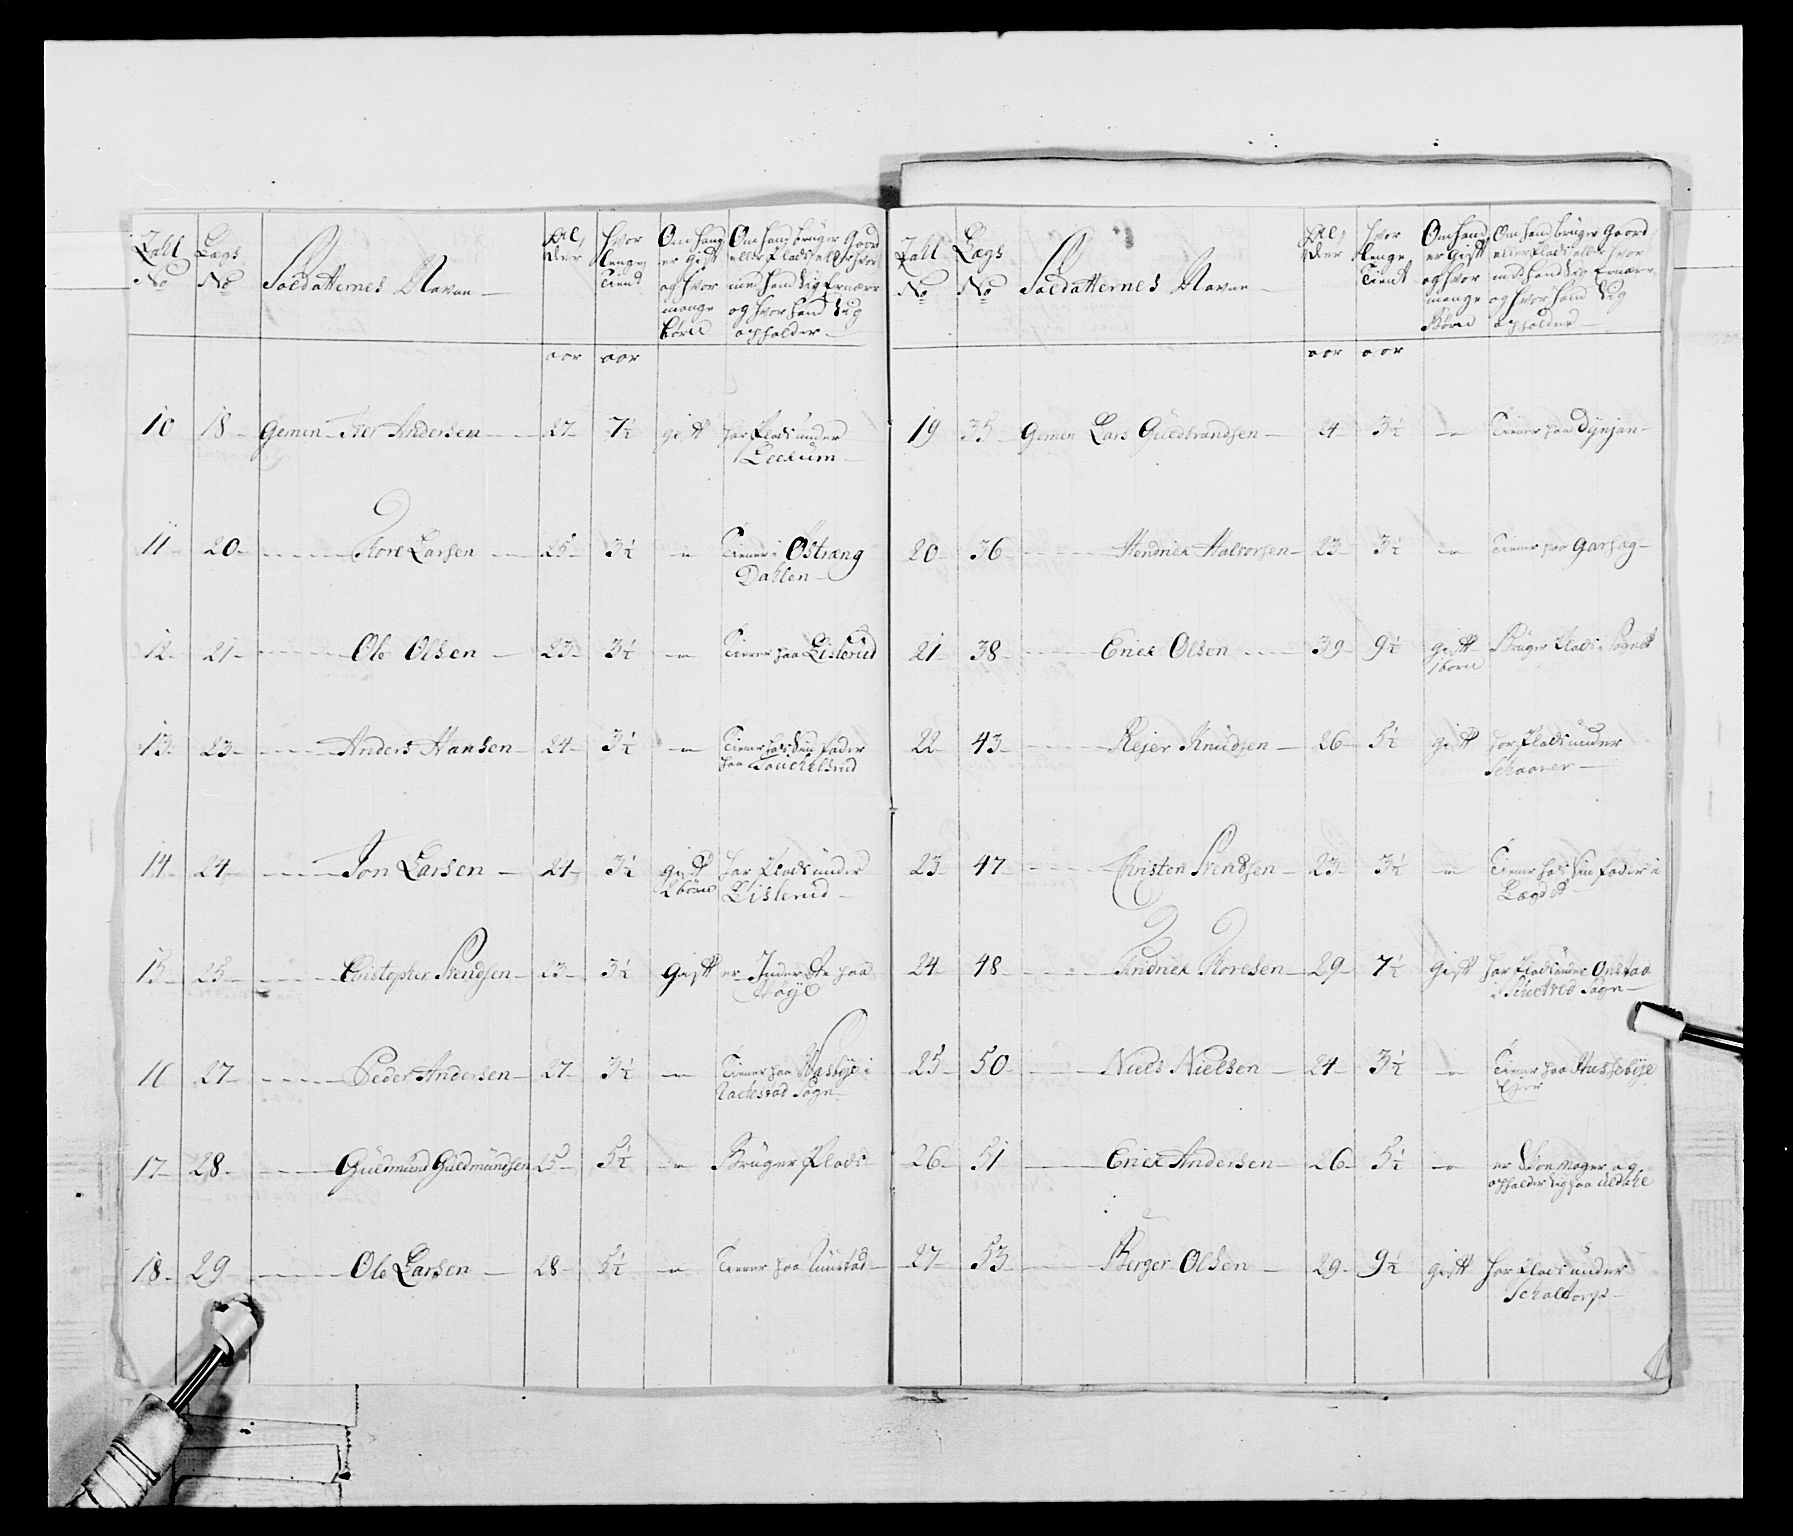 Zahl No
Lægs No
Soldatternes Navne
Al, der
Hvor lenge Tient
Om hand er gift og hvor mange børn
Om hand brüger Gaard eller Plads eller hvor med hand sig Ernærer og hvor hand sig opholder
aar aar
10 18 Gemen Iver Andersen 27 7½ gift har Plads under
Leekum
11 20 Tore Larsen 25 3½ - Tiener i Østræng
Dahlen
12 21 Ole Olsen 23 3½ - Tiener paa Lislerud
13 23 Anders Hansen 24 3½ - Tiener hos sin fader
paa
14 24 Jon Larsen 24 3½ gift har Plads under
2 børn Lislerud
15 25 Christopher Svendsen 23 3½ gift er Inderste paa
Høye
16 27 Peder Andersen 27 3½ - Tiener paa Wasbye i
Rachstad Sogn
17 28 Guldmund Guldmundsen 25 5½ - Brüger Plads
18 29 Ole Larsen 28 5½ - Tiener paa
Zahl No
Lægs No
Soldatternes Navne
Al, der
Hvor lenge Tient
Om hand er gift og hvor mange Børn
Om hand brüger Gaard eller Plads eller hvor med hand sig Ernærer og hvor hand sig opholder
aar aar
19 35 Gemen Lars Guldbrandsen 24 3½ - Tiener paa Dynjan
20 36 Hendrick Halvorsen 23 3½ - Tiener paa Garsæg
21 38 Erick Olsen 39 9½ gift Brüger Plads i Sognet
1 born
22 43 Rejer Knudsen 26 5½ gift har Plads under
Schaarer
23 47 Christen Svendsen 23 3½ - Tiener hos sin fader i
Lægdet
24 48 Hindrick Toresen 29 7½ gift har Plads under Onstad
i Sogn
25 50 Niels Nielsen 24 3½ - Tiener paa Hussebye
26 51 Erick Andersen 26 5½ - er Skomager og
opholder sig paa
27 53 Berger Olsen 29 9½ gift har Plads under
Schaltorp